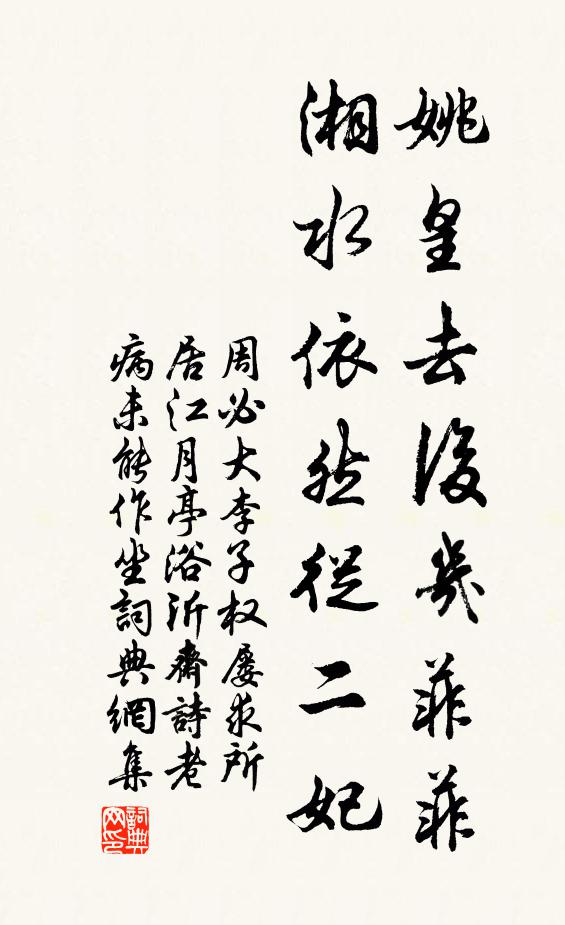 姚皇去後幾菲菲
湘水依然從二妃
周必大李子权屡求所
居江月亭浴沂齋詩老
病未能作坐詞典網集
詞典
网印